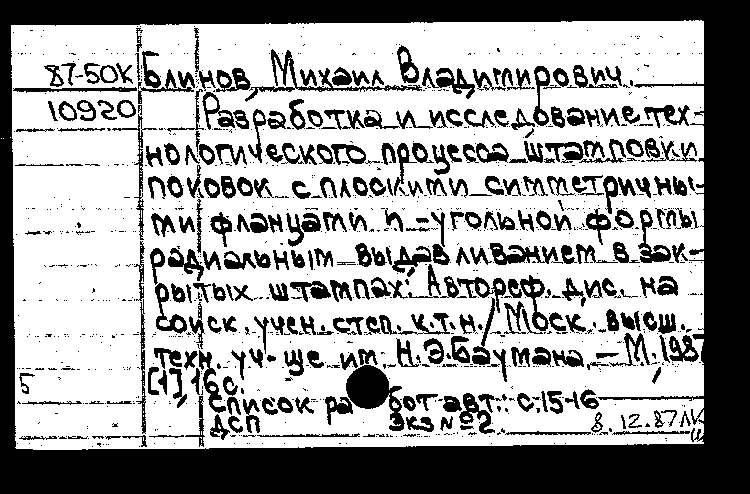 87-50К Блинов, Михаил Владимирович.
10920 Разработка и исследование тех-
нологического процесса штамповки
поковок с плоскими симметричны-
ми фланцами n-угольной формы
радиальным выдавливанием в зак-
рытых штампах: Автореф. дис. на
соиск. учен. степ. к.т.н. / Моск. высш.
техн. уч-ще им. Н.Э.Баумана.— М.,1987
Б [1],16с.
Список работ авт.: с.15-16
ДСП Экз №2. 8.12.87ЛК